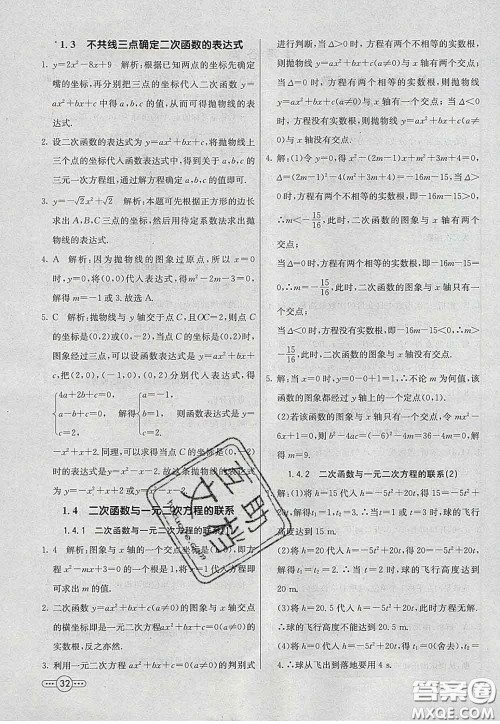 1.3 不共线三点确定二次函数的表达式
1. y=2x²-8x+9 解析:根据已知两点的坐标先确定
嘴的坐标,再分别把三点的坐标代入二次函数 y=
ax²+bx+c 中得出 a,b,c 的值即可求出抛物线的表
达式.
2. 设二次函数的表达式为 y=ax²+bx+c,将抛物线上
三个点的坐标代入函数表达式中,得到关于 a,b,c 的
三元一次方程组,通过解方程确定 a,b,c 的值即可.
3. y=-√2x²+√2 解析:本题可先根据正方形的边长
求出 A,B,C 三点坐标,然后用待定系数法求出抛
物线的表达式.
4. A 解析:因为抛物线的图象过原点,所以 x=0
时,y=0,将(0,0)代入表达式,得 m²-2m-3=0,
解得 m=-1 或 3.故选 A.
5. C 解析:抛物线与 y 轴交于点 C,且OC=2,则点 C
的坐标是(0,2)或(0,-2),当点 C 的坐标是(0,2)时,
图象经过三点,可以设函数表达式是 y=ax²+bx+c,
把(2,0),(-1,0),(0,2)分别代入表达式,得
4a+2b+c=0,
a-b+c=0,
c=2,
解得
a=-1,
b=1,
c=2,
则函数表达式是 y=
-x²+x+2.同理,可以求得当 C 的坐标是(0,-2)时
函数表达式是 y=x²-x-2.故这条抛物线的表达式
为 y=-x²+x+2 或 y=x²-x-2.
1.4 二次函数与一元二次方程的联系
1.4.1 二次函数与一元二次方程的联系
1. 4 解析:图象与 x 轴的一个交点坐标是(1,0),方
程 x²-mx+3=0 的一个根是 1,将 x=1 代入方程即
可求解.
2. 二次函数 y=ax²+bx+c(a≠0)的图象与 x 轴交点
的横坐标即是一元二次方程 ax²+bx+c=0(a≠0)的
实数根.
3. 利用一元二次方程 ax²+bx+c(a≠0)的判别式
32
进行判断.当 Δ>0 时,方程有两个不相等的实数根,
则抛物线 y=ax²+bx+c(a≠0)与 x 轴有两个交点;
当 Δ=0 时,方程有两个相等的实数根,则抛物线 y=
ax²+bx+c(a≠0)与 x 轴有一个交点;当 Δ<0 时,
方程没有实数根,则抛物线 y=ax²+bx+c(a≠0)与
x 轴没有交点.
4. 解:(1)令 y=0,得 x²-(2m-1)x+m²+3m+4=0,
∴Δ=(2m-1)²-4(m²+3m+4)=-16m-15.
当 Δ>0 时,方程有两个不相等的实数根,即-16m-15>0,
∴m<-15/16,此时,二次函数的图象与 x 轴有两个
交点;
当 Δ=0 时,方程有两个相等的实数根,即-16m-15=0,
∴m=-15/16,此时,二次函数的图象与 x 轴只有一个
交点;
当 Δ<0 时,方程没有实数根,即-16m-15<0,∴m>
-15/16,此时,二次函数的图象与 x 轴没有交点.
解:(1)当 x=0 时,y=1.∴不论 m 为何值,该
函数的图象都经过 y 轴上的一个定点(0,1).
(2)若该函数的图象与 x 轴只有一个交点,则 mx²-6x
+1=0,b²-4ac=(-6)²-4m=0,即 36-4m=0,
解得 m=9.
1.4.2 二次函数与一元二次方程的联系(2)
1. 解:(1)将 h=15 代入 h=-5t²+20t,得 15=-5t²+
20t.解得 t₁=1,t₂=3.∴当球飞行 1 s 或 3 s 时,球飞行
高度达到 15 m.
(2)将 h=20 代入 h=-5t²+20t,得 20=-5t²+
20t,解得 t₁=t₂=2.∴当球飞行 2 s 时,球的飞行高度达
到 20 m.
(3)将 h=20.5 代入 h=-5t²+20t,此时方程无解.
∴球的飞行高度不能达到 20.5 m.
(4)将 h=0 代入 h=-5t²+20t,得 t₁=0(舍去),t₂=
4.∴球从飞出到落地要用 4 s.
互助文档
答案圈
MXQE.COM